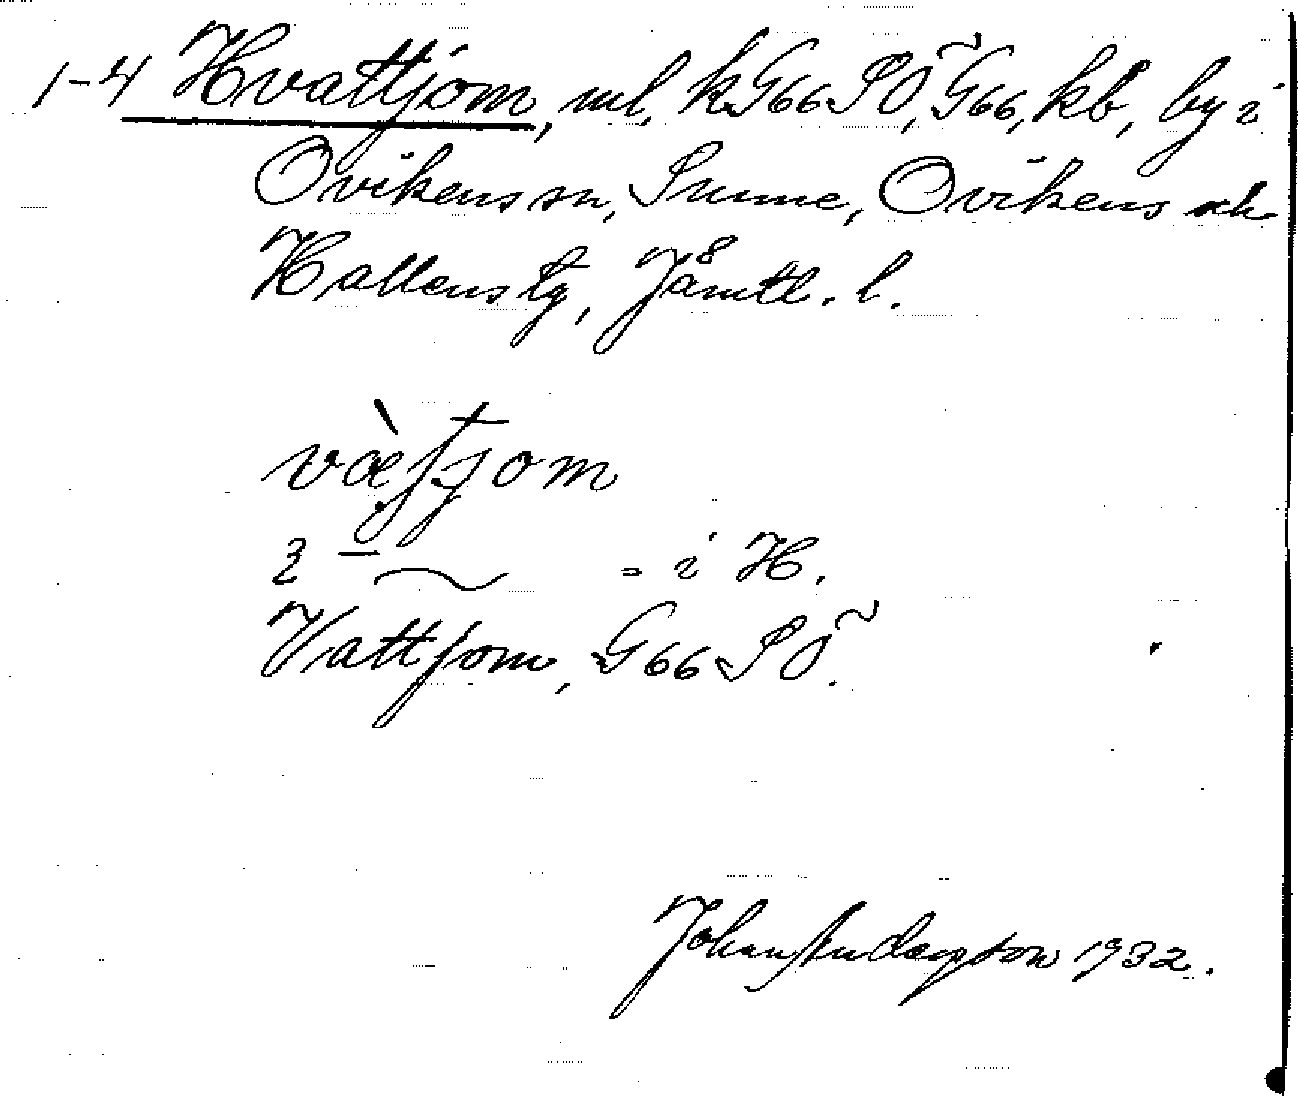 1-4 Hvattjom, ml, kG66SÖ, G66, kb, by i
Ovikens sn, Sunne, Ovikens och
Hallens tg, Jämtl. l.
vætjom
i H.
Vattjom, G66SÖ.
Johan Anderson 1932.